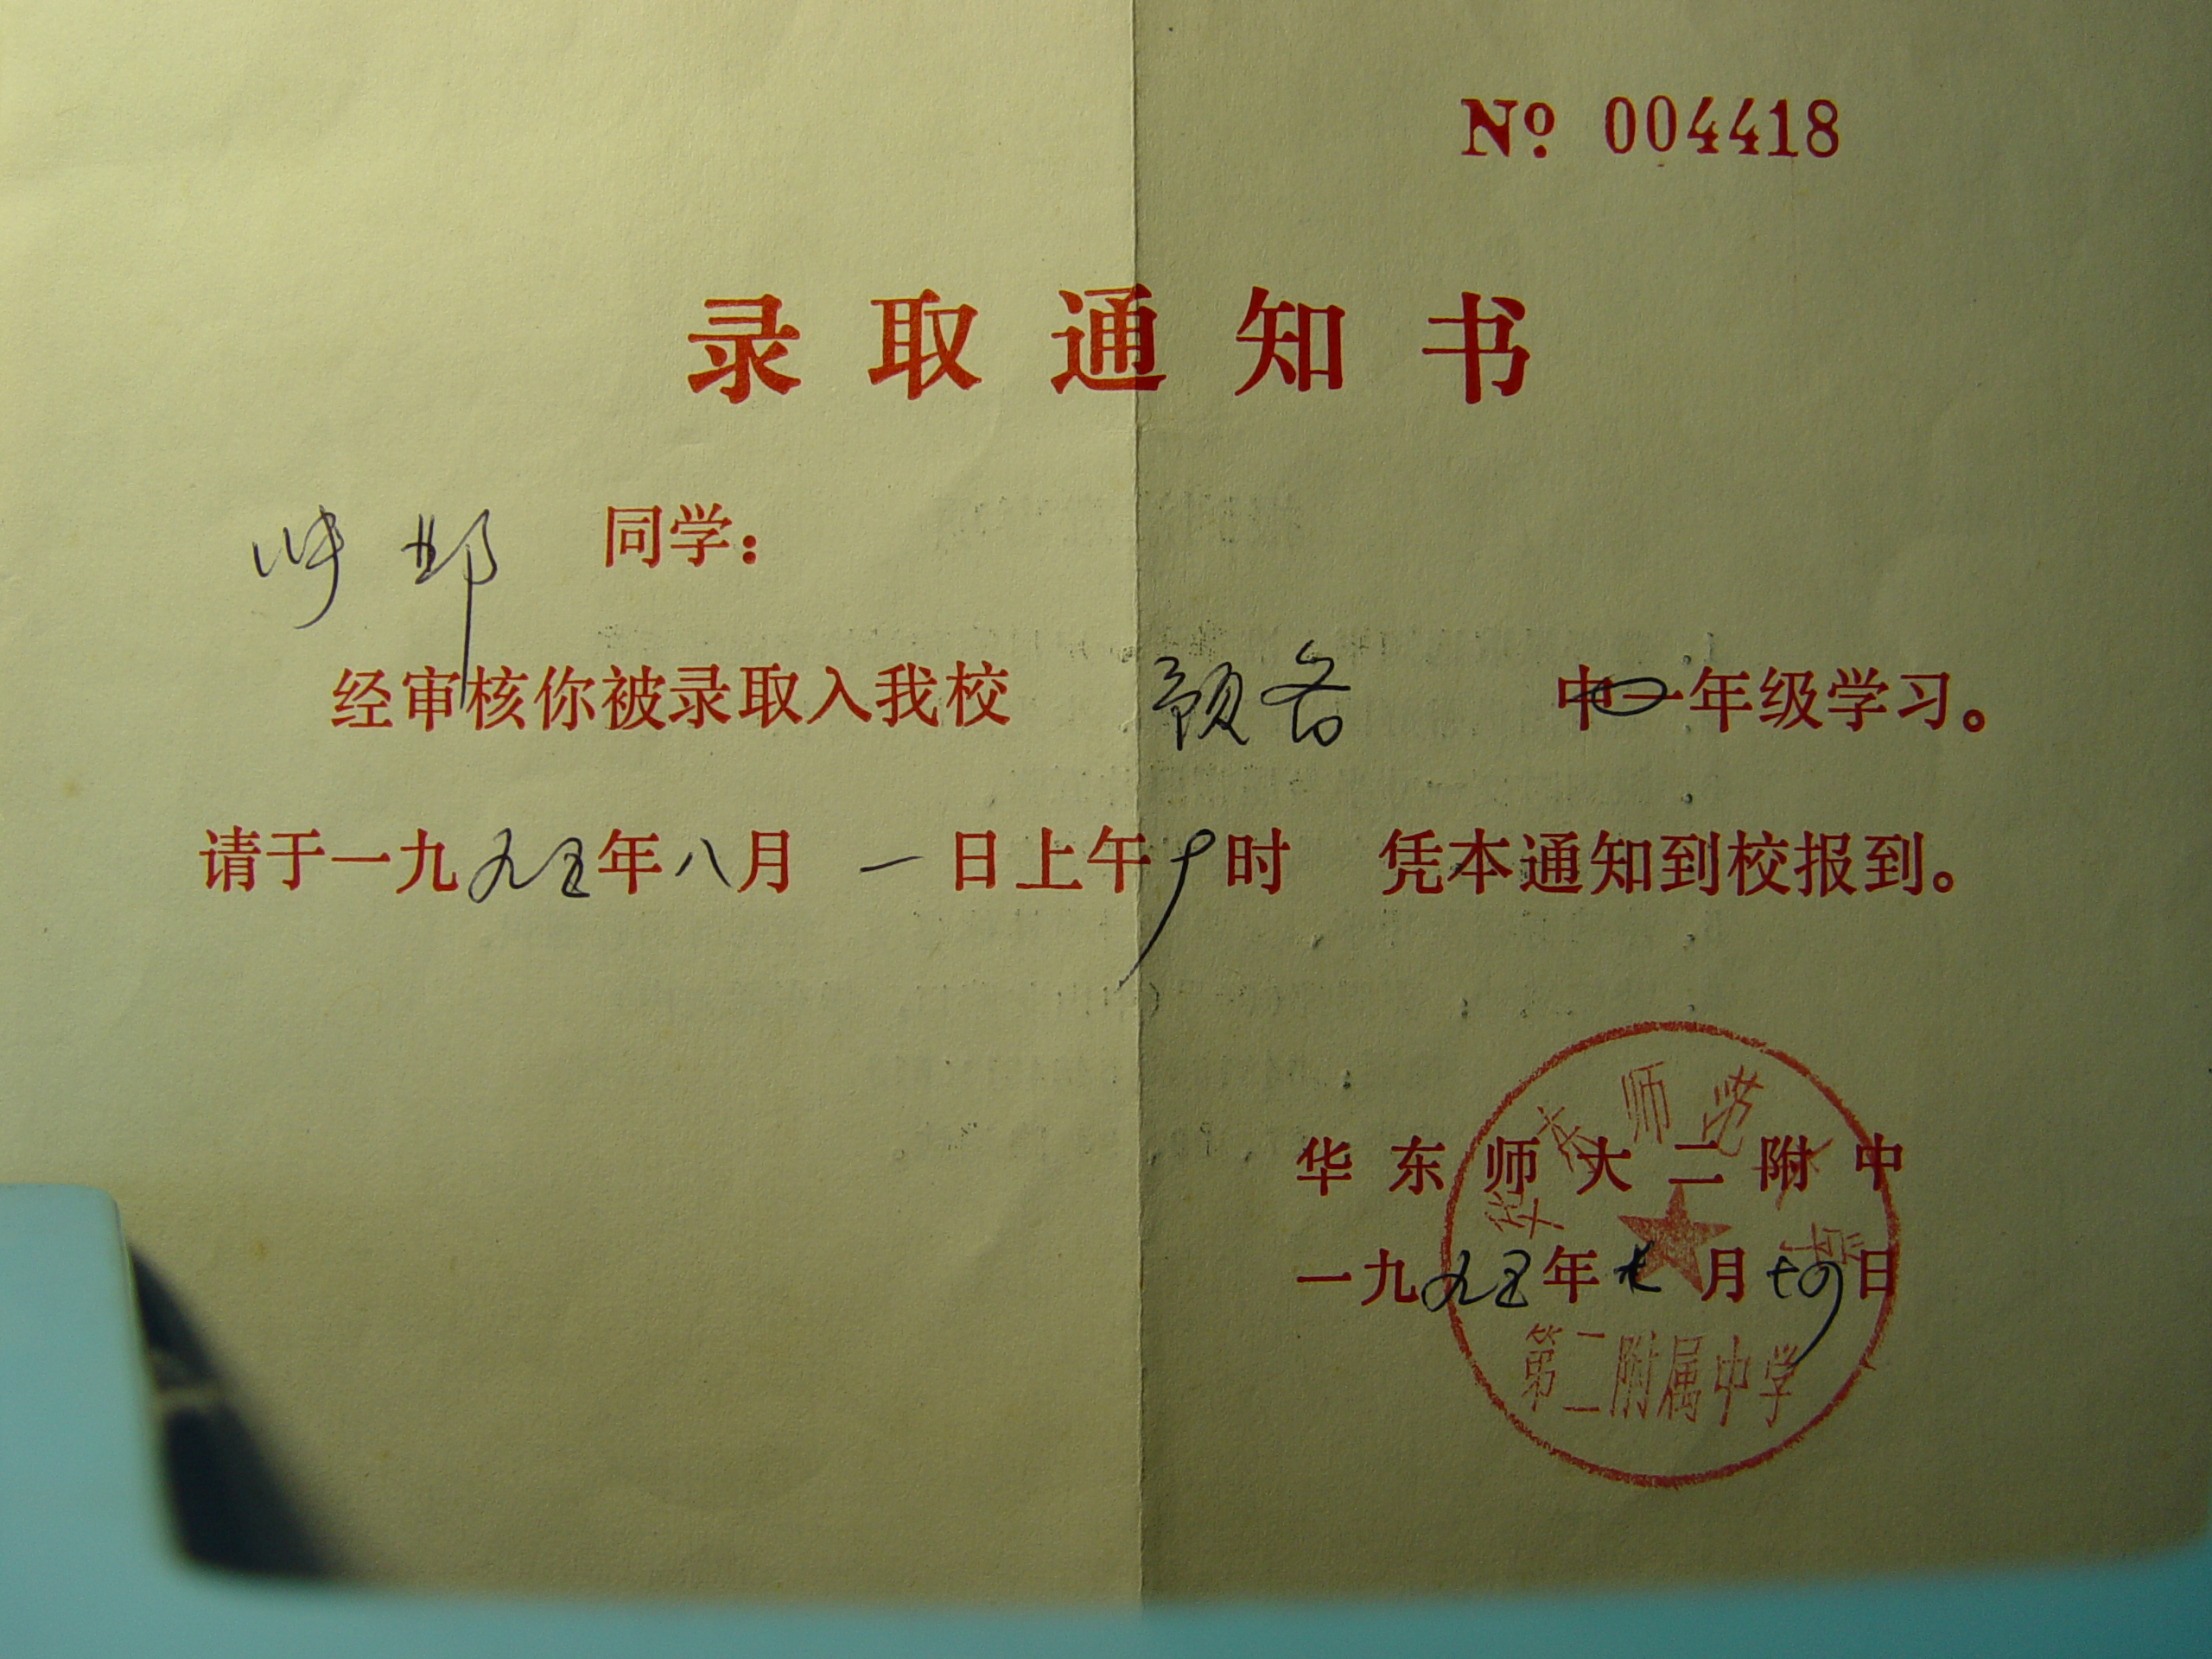 № 004418
录取通知书
同学：
经审核你被录取入我校 预备 中一年级学习。
请于一九九五年八月一日上午9时 凭本通知到校报到。
华东师大二附中
一九九五年七月十四日
华东师范大学
第二附属中学